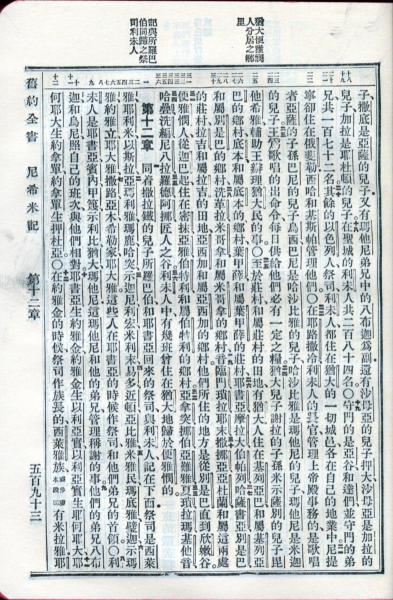 猶大便雅憫
人分居之鄉
里
記與所羅巴
伯同歸之祭
司利未人
子撒底是亞薩的兒子又有瑪他尼弟兄中的八布迦為副還有沙母亞的兒子押大沙母亞是加拉的
兒子加拉是耶杜頓的兒子在聖城的利未人共二百八十四名○守門的是亞谷和達們並守門的弟
兄共一百七十二名其餘的以色列人祭司利未人都住在猶大的一切城邑各在自己的地業中尼提
寧卻住在俄斐勒西哈和基斯帕管理他們○在耶路撒冷利未人的長官管理上帝殿事務的是歌唱
者亞薩的子孫巴尼的兒子烏西巴尼是哈沙比雅的兒子哈沙比雅是瑪他尼的兒子瑪他尼是米迦
的兒子王為歌唱的出命令每日供給他們必有一定之糧猶大兒子謝拉的子孫米示薩別的兒子毘
他希雅輔助王辦理猶大民的事○至於莊村和屬莊村的田地有猶大人住在基列亞巴和屬基列亞
巴的鄉村底本和屬底本的鄉村葉甲薛和屬葉甲薛的莊村耶書亞摩拉大伯帕列哈薩書亞別是巴
和屬別是巴的鄉村洗革拉米哥拿和屬米哥拿的鄉村音臨門瑣拉耶末撒挪亞亞杜蘭和屬這兩處
的莊村拉吉和屬拉吉的田地亞西加和屬亞西加的鄉村他們所住的地方是從別是巴直到欣嫩谷
便雅憫人從迦巴起住在密抹亞雅伯特利和屬伯特利的鄉村亞拿突挪伯亞難雅夏瑣拉瑪基他音
哈疊洗編尼八拉羅德阿挪匠人之谷利未人中有幾班曾住在猶大地歸於便雅憫的
第十二章 同着撒拉鐵的兒子所羅巴伯和耶書亞回來的祭司與利未人記在下面祭司是西萊
雅耶利米以斯拉亞瑪利雅瑪鹿哈突示迦尼利宏米利末易多近頓亞比雅米雅民瑪底雅璧迦示瑪
雅約雅立耶大雅撒路亞木希勒家耶大雅這些人在耶書亞的時候作祭司和他們弟兄的首領○利
未人是耶書亞賓內甲篾示利比猶大瑪他尼這瑪他尼和他的弟兄管理稱謝的事他們的弟兄八布
迦和烏尼照自己的班次與他們相對耶書亞生約雅金約雅金生以利亞實以利亞實生耶何耶大耶
何耶大生約拿單約拿單生押杜亞○在約雅金的時候祭司作族長的西萊雅族或作班本段同有米拉雅耶
舊約全書 尼希米記 第十二章 五百九十三